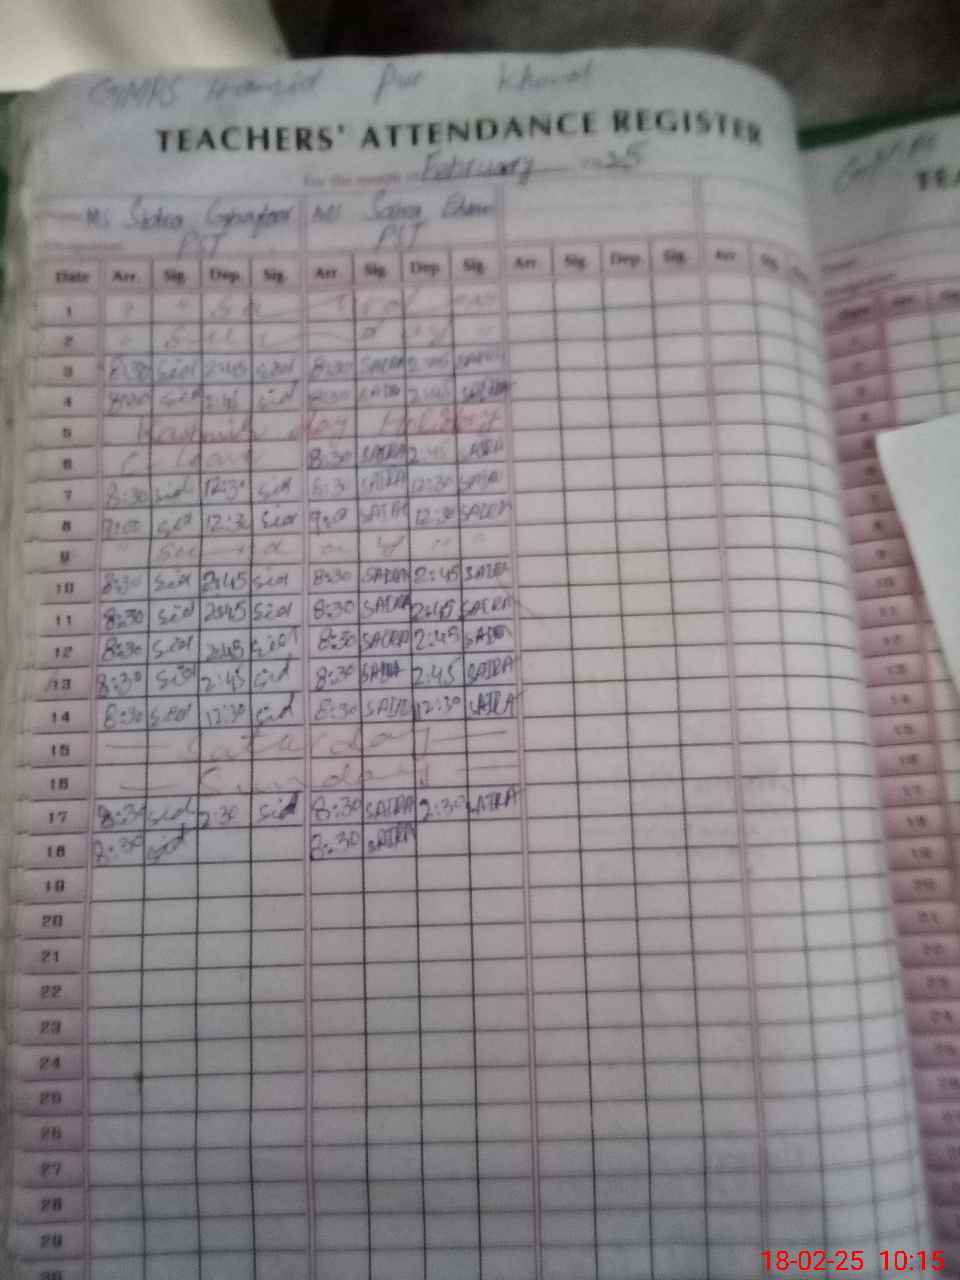 GMPS Hamid Pur
TEACHERS' ATTENDANCE REGISTER
For the month of February 2025
Ms Sidra Ms Saira
PST PST
Date Arr. Sig. Dep. Sig. Arr. Sig. Dep. Sig. Arr. Sig. Dep. Sig. Arr. Sig.
1
2
3 8:30 sid 2:45 sid 8:30 SAIRA 2:45 SAIRA
4 8:30 sid 2:45 sid 8:30 SAIRA 2:45 SAIRA
5 Kashmir day Holiday
6 C leave 8:30 SAIRA 2:45 SAIRA
7 8:30 sid 12:30 sid 8:30 SAIRA 12:30 SAIRA
8 9:00 sid 12:30 sid 9:00 SAIRA 12:30 SAIRA
9
10 8:30 sid 2:45 sid 8:30 SAIRA 2:45 SAIRA
11 8:30 sid 2:45 sid 8:30 SAIRA 2:45 SAIRA
12 8:30 sid 2:45 sid 8:30 SAIRA 2:45 SAIRA
13 8:30 sid 2:45 sid 8:30 SAIRA 2:45 SAIRA
14 8:30 sid 12:30 sid 8:30 SAIRA 12:30 SAIRA
15 Saturday
16 Sunday
17 8:30 sid 2:30 sid 8:30 SAIRA 2:30 SAIRA
18 8:30 sid 8:30 SAIRA
19
20
21
22
23
24
25
26
27
28
29
30
18-02-25 10:15